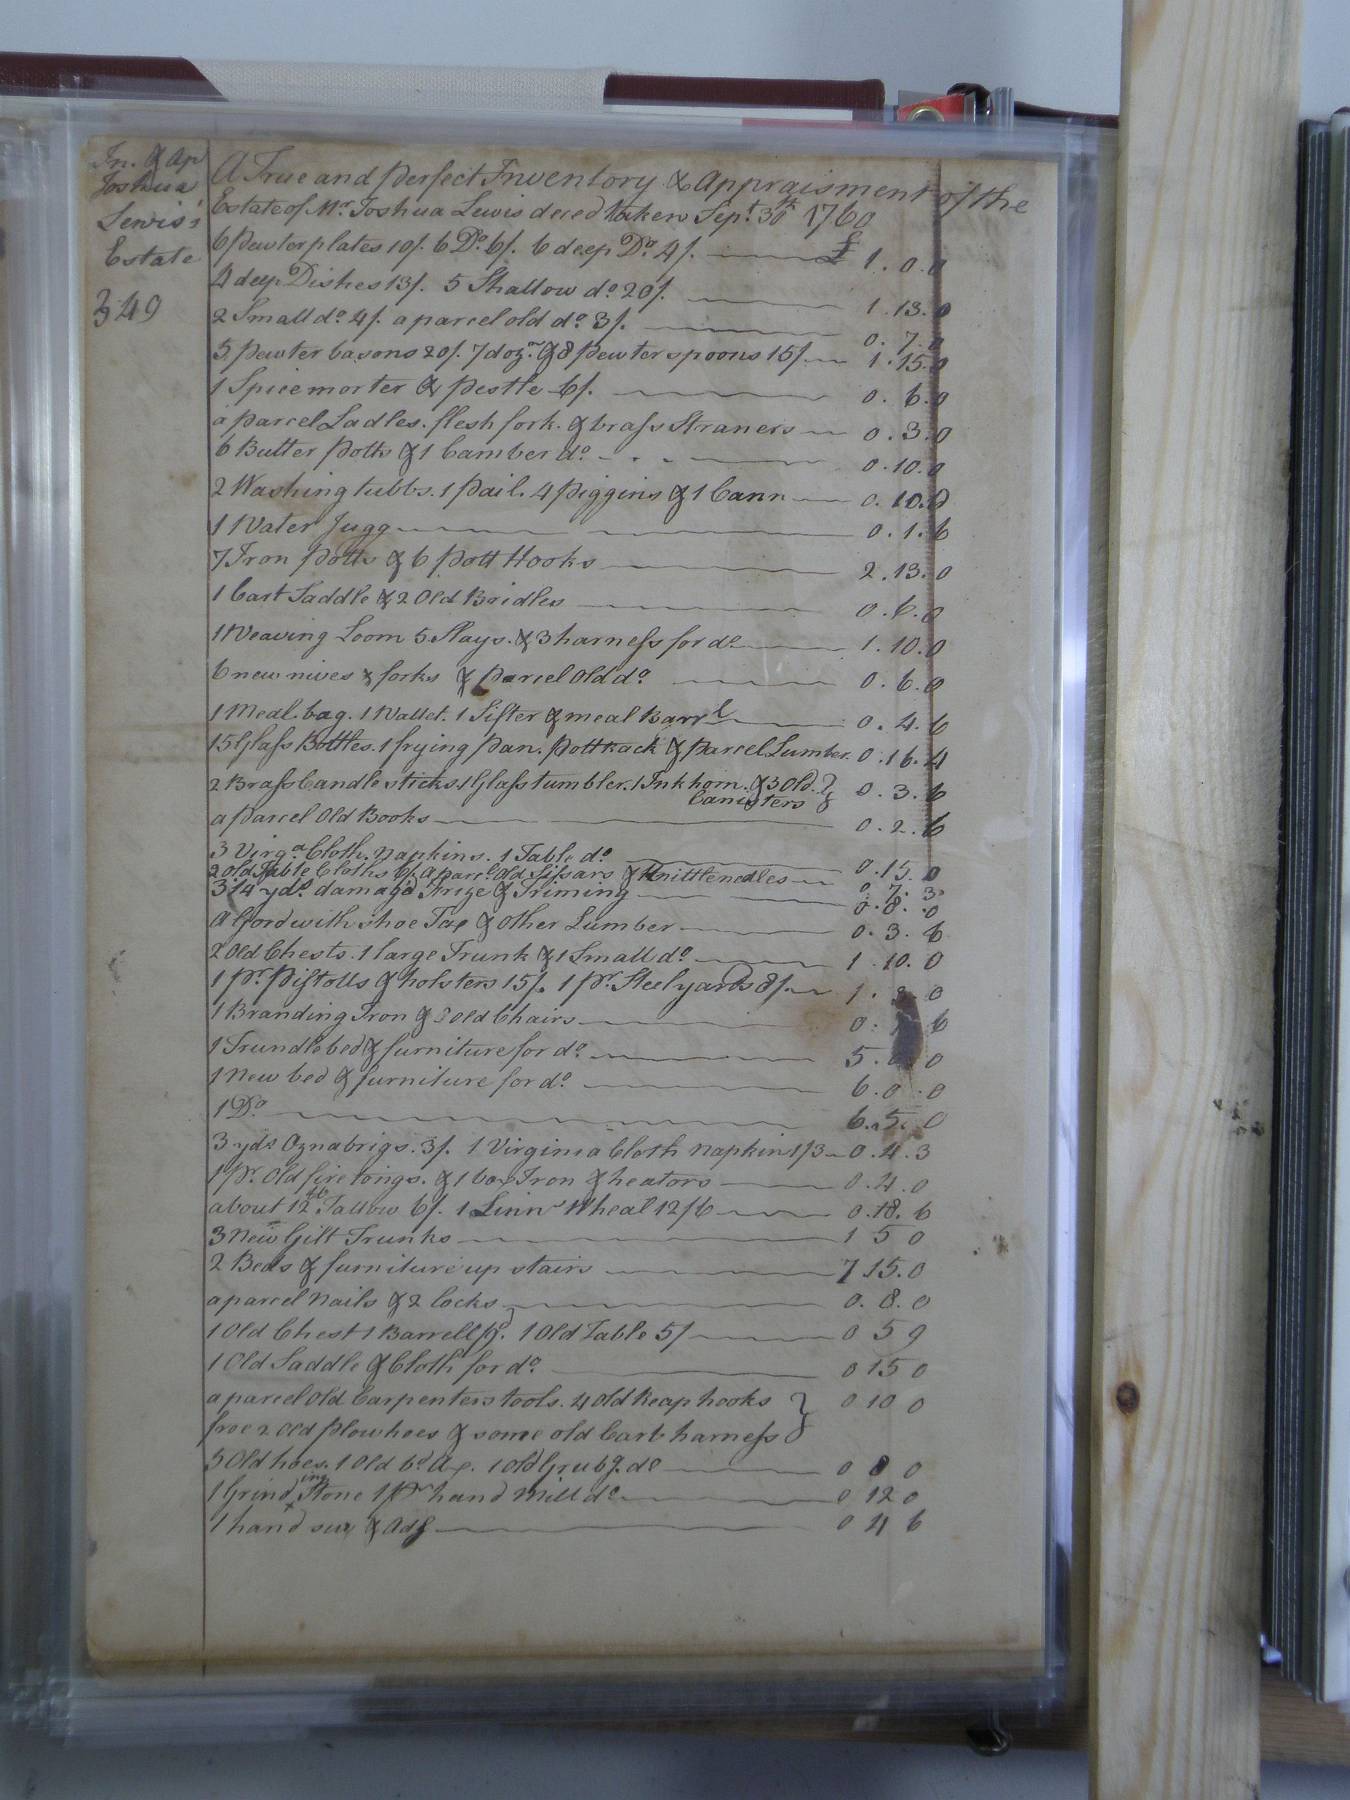 In. & Ap
Joshua
Lewis's
Estate
349
A True and perfect Inventory & Appraisment of the
Estate of Mr. Joshua Lewis deced taken Sept. 30th 1760
6 pewter plates 10/. 6 Do. 6/. 6 deep Do. 4/. £ 1.0.0
4 deep Dishes 13/. 5 Shallow do. 20/. 1.13.0
2 Small do. 4/. a parcel old do. 3/. 0.7.0
5 pewter basons 20/. 7 dozn. & 8 pewter spoons 15/ 1.15.0
1 Spice morter & pestle 6/. 0.6.0
a parcel Ladles. flesh fork. & brass Straners 0.3.0
6 Butter potts & 1 Camber do. 0.10.0
2 Washing tubbs. 1 pail. 4 piggins & 1 Cann 0.10.0
1 Water Jugg 0.1.6
7 Iron potts & 6 pott Hooks 2.13.0
1 Cart Saddle & 2 Old Bridles 0.6.0
1 Weaving Loom 5 Slays. & 3 harness for do. 1.10.0
6 new nives & forks & parcel Old do. 0.6.0
1 Meal bag. 1 Wallet. 1 Sifter & meal Barrl 0.4.6
15 Glass Bottles. 1 frying pan. pottrack & parcel Lumber. 0.16.4
2 Brass Candlesticks. 1 Glass tumbler. 1 Inkhorn. & 3 Old 0.3.6
Canisters
a parcel Old Books 0.2.6
3 Virga. Cloth. napkins. 1 Table do. 0.15.0
2 old Table Cloths 6/. a parcl. Old Sissars & Knittlenedles 0.7.3
3 1/4 yds. damagd Frize & Triming 0.8.0
A Gord with shoe Tax & other Lumber 0.3.6
2 Old Chests. 1 large Trunk & 1 Small do. 1.10.0
1 pr. pistolls & holsters 15/. 1 pr. Steelyards 8/. 1.3.0
1 Branding Iron & 8 old Chairs 0. 6
1 Trundle bed & furniture for do. 5. 0
1 New bed & furniture for do. 6.0.0
1 Do. 6.5.0
3 yds Oznabrigs. 3/. 1 Virginia Cloth napkin 1/3 0.4.3
1 pr. Old fire tongs. & 1 box Iron & heators 0.4.0
about 12 lb Tallow 6/. 1 Linn Wheal 12/6 0.18.6
3 New Gilt Trunks 1 5 0
2 Beds & furniture up stairs 7 15.0
a parcel nails & 2 locks 0.8.0
1 Old Chest 1 Barrell pd. 1 Old Table 5/ 0 5 9
1 Old Saddle & Cloth for do. 0 15 0
a parcel Old Carpenters tools. 4 Old Reap hooks 0 10 0
froe 2 Old plow hoes & some old Cart harness
5 Old hoes. 1 Old bd Ax. 1 old Grubg. do 0 8 0
1 Grinding Stone 1 pr hand Mill do. 0 12 0
1 hand saw & Adz 0 4 6